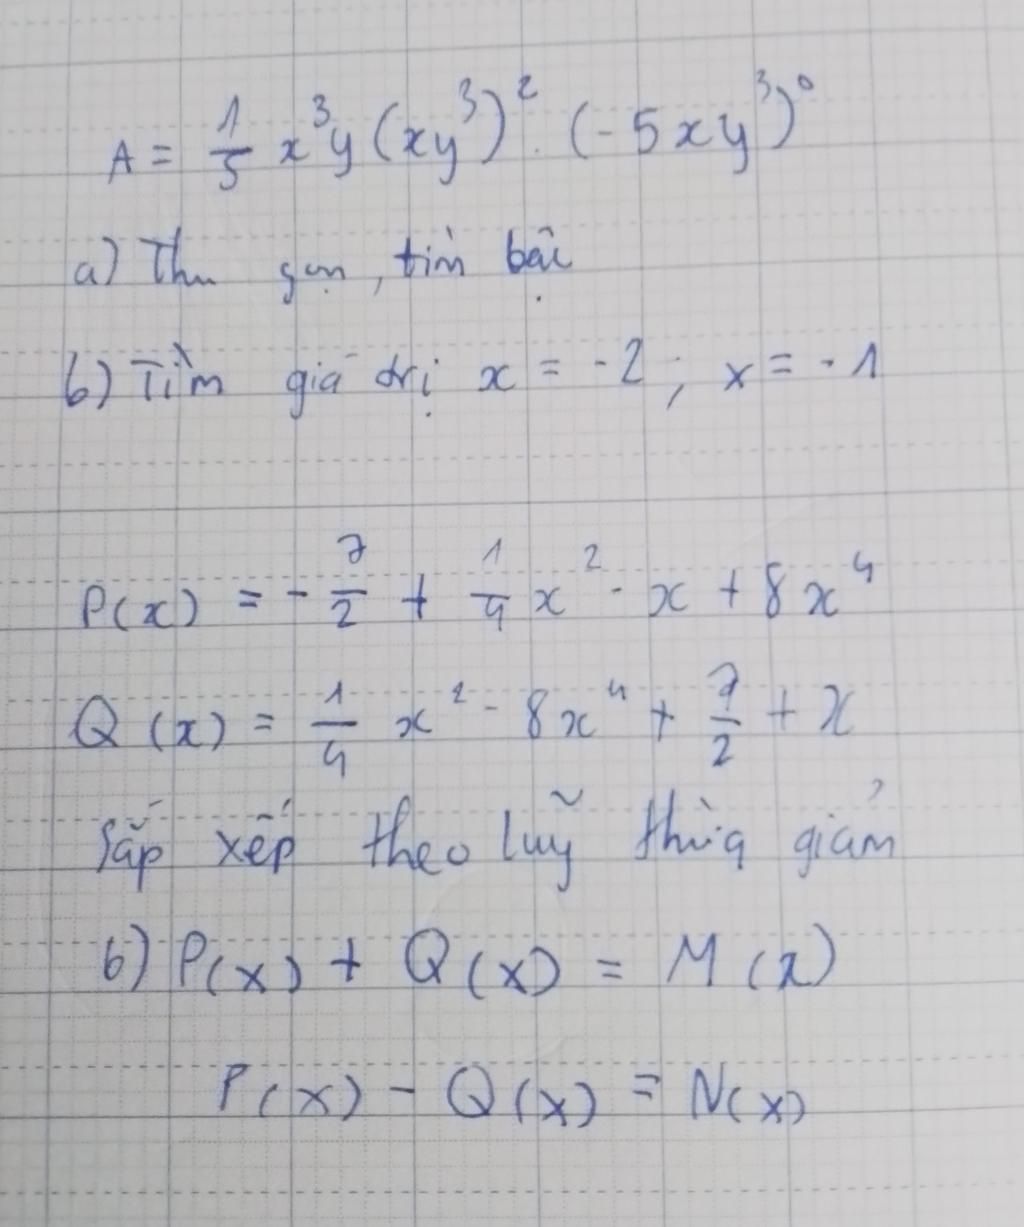 A = 1/5 x³y (xy³)² . (-5xy³)⁰
a) Thu gọn, tìm bậc
b) Tìm giá trị x = -2 ; x = -1
P(x) = - 7/2 + 1/4 x² - x + 8x⁴
Q(x) = 1/4 x² - 8x⁴ + 7/2 + x
Sắp xếp theo luỹ thừa giảm
b) P(x) + Q(x) = M(x)
P(x) - Q(x) = N(x)